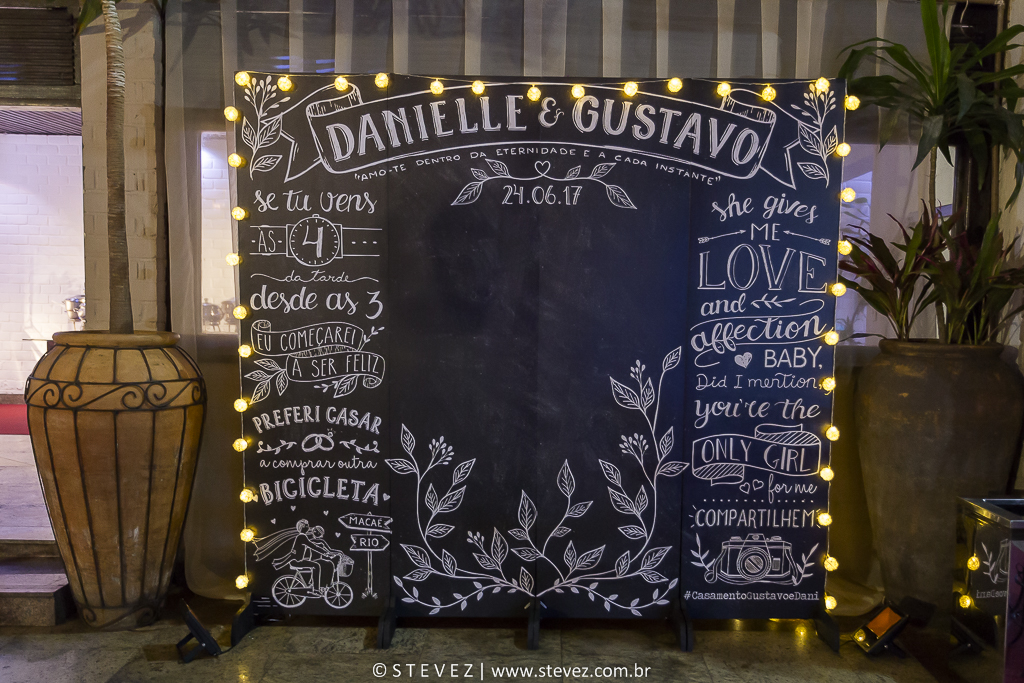 DANIELLE & GUSTAVO
"AMO-TE DENTRO DA ETERNIDADE E A CADA INSTANTE"
24.06.17
se tu vens
ÀS 4
da tarde
desde as 3
EU COMEÇAREI
A SER FELIZ
PREFERI CASAR
a comprar outra
BICICLETA
MACAÉ
RIO
she gives
ME
LOVE
and
affection
BABY,
Did I mention
you're the
ONLY GIRL
for me
COMPARTILHEM
#CasamentoGustavoeDani
© STEVEZ | www.stevez.com.br